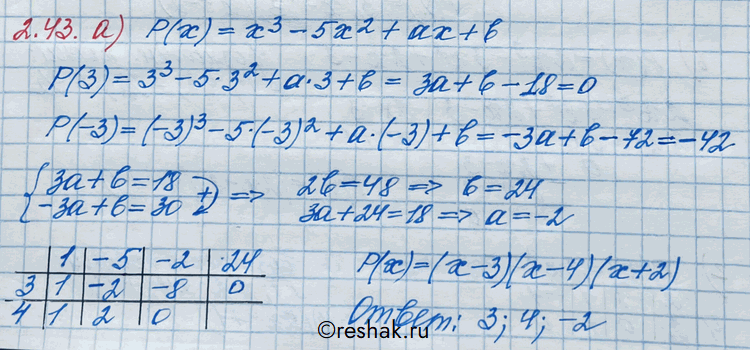 2.43. а) P(x) = x³ − 5x² + ax + b
P(3) = 3³ − 5·3² + a·3 + b = 3a + b − 18 = 0
P(−3) = (−3)³ − 5·(−3)² + a·(−3) + b = −3a + b − 72 = −42
{ 3a + b = 18
−3a + b = 30 } + => 2b = 48 => b = 24
3a + 24 = 18 => a = −2
1 | −5 | −2 | 24
3 | 1 | −2 | −8 | 0
4 | 1 | 2 | 0
P(x) = (x−3)(x−4)(x+2)
Ответ: 3; 4; −2
©reshak.ru